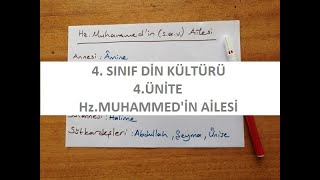 Hz. Muhammed'in (s.a.v) Ailesi
Annesi: Âmine
4. SINIF DİN KÜLTÜRÜ
4.ÜNİTE
Hz.MUHAMMED'İN AİLESİ
Halime
Sütkardeşleri: Abdullah, Şeyma, Üneyse